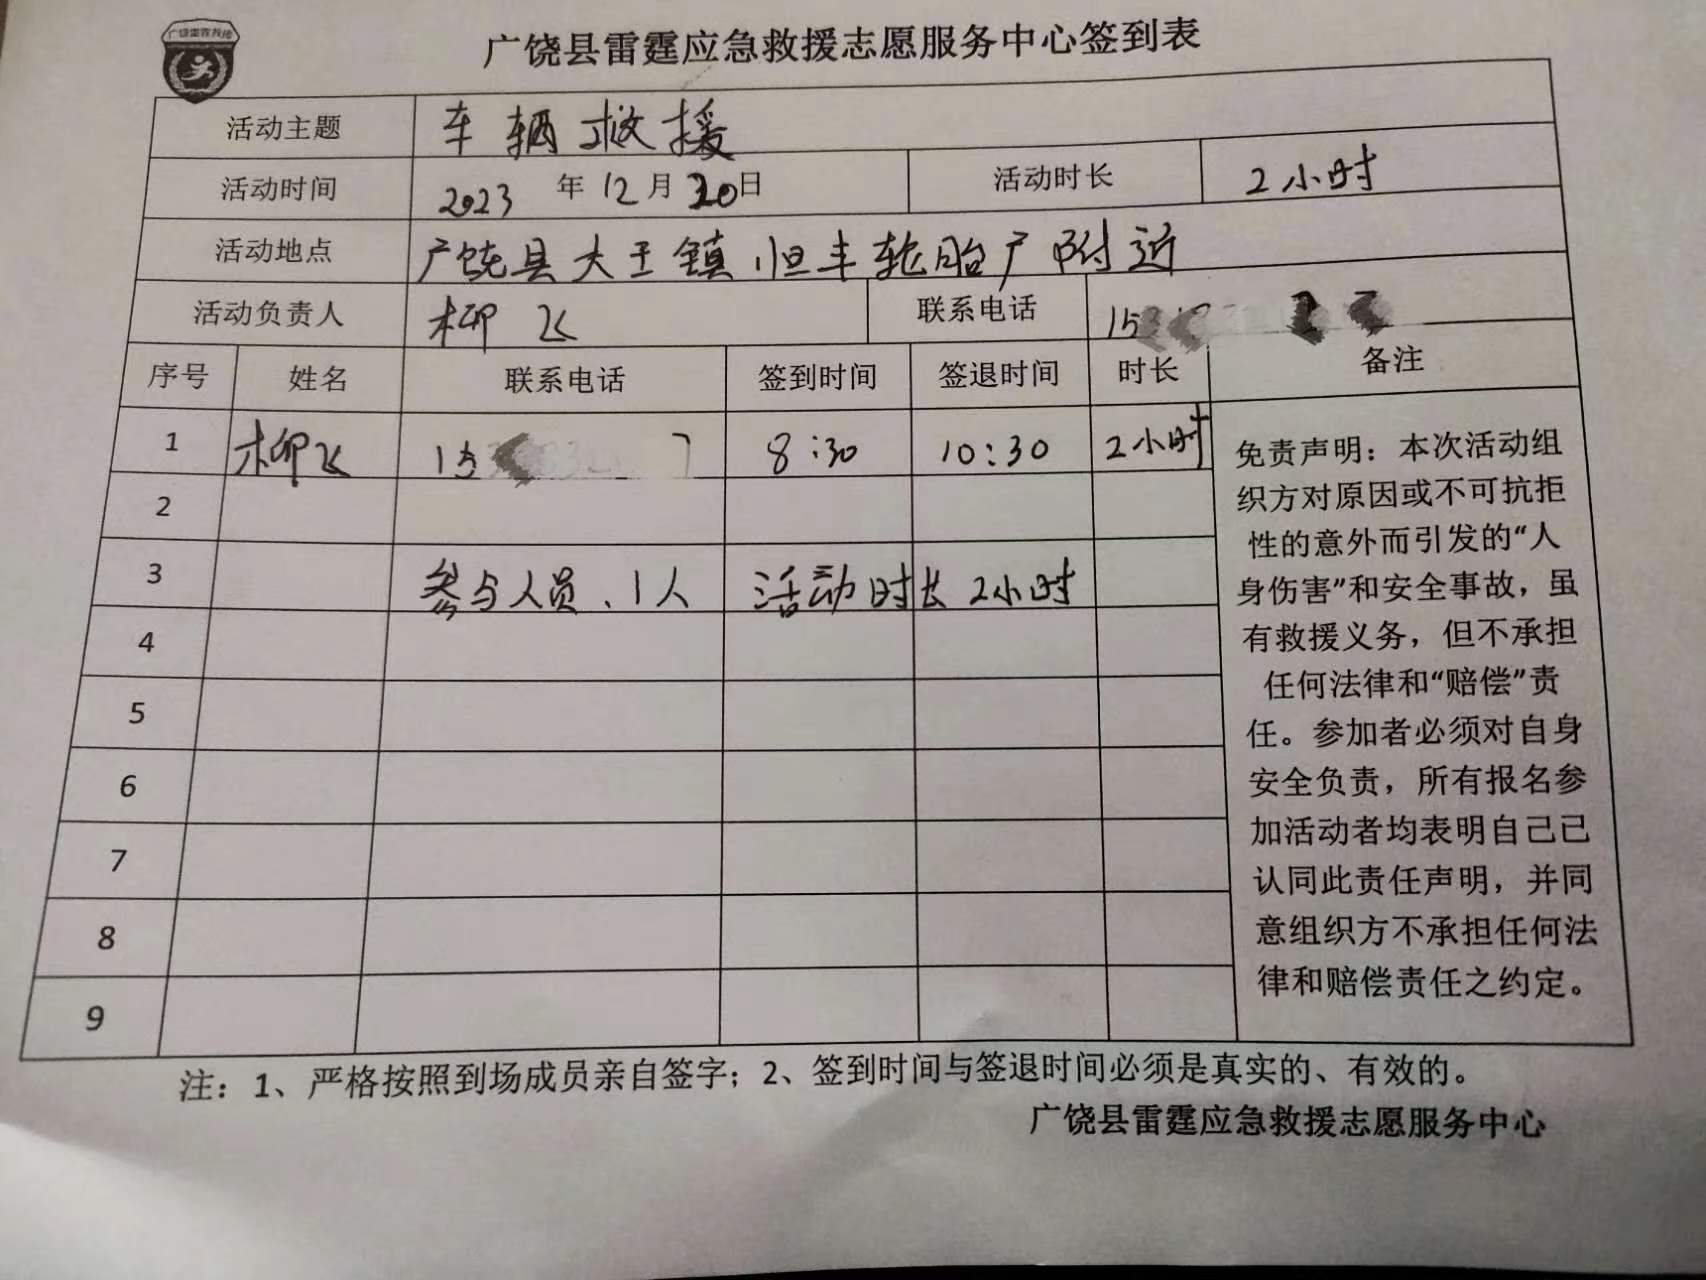 广饶县雷霆应急救援志愿服务中心签到表
活动主题 车辆救援
活动时间 2023 年 12 月 20 日 活动时长 2小时
活动地点 广饶县大王镇恒丰轮胎厂附近
活动负责人 柳飞 联系电话 15
序号 姓名 联系电话 签到时间 签退时间 时长 备注
1 柳飞 15 7 8:30 10:30 2小时
2
3 参与人员、1人 活动时长2小时
4
5
6
7
8
9
免责声明：本次活动组
织方对原因或不可抗拒
性的意外而引发的“人
身伤害”和安全事故，虽
有救援义务，但不承担
任何法律和“赔偿”责
任。参加者必须对自身
安全负责，所有报名参
加活动者均表明自己已
认同此责任声明，并同
意组织方不承担任何法
律和赔偿责任之约定。
注：1、严格按照到场成员亲自签字；2、签到时间与签退时间必须是真实的、有效的。
广饶县雷霆应急救援志愿服务中心